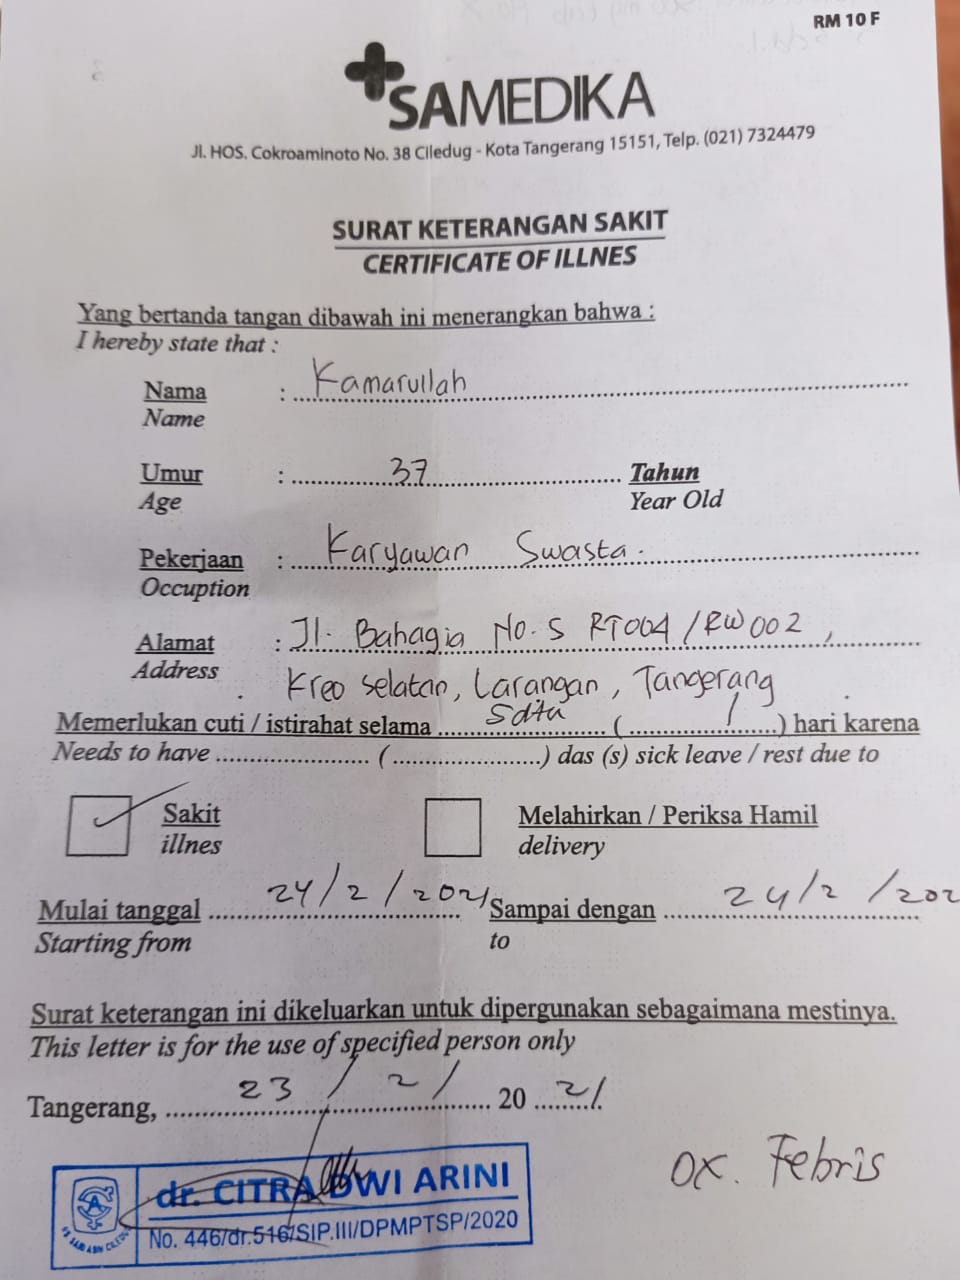 RM 10 F
SAMEDIKA
Jl. HOS. Cokroaminoto No. 38 Ciledug - Kota Tangerang 15151, Telp. (021) 7324479
SURAT KETERANGAN SAKIT
CERTIFICATE OF ILLNES
Yang bertanda tangan dibawah ini menerangkan bahwa :
I hereby state that :
Nama : Kamarullah
Name
Umur : 37 Tahun
Age Year Old
Pekerjaan : Karyawan Swasta.
Occuption
Alamat : Jl. Bahagia No. 5 RT004 / RW 002,
Address Kreo Selatan, Larangan, Tangerang
Memerlukan cuti / istirahat selama Satu ( 1 ) hari karena
Needs to have ( ) das (s) sick leave / rest due to
Sakit Melahirkan / Periksa Hamil
illnes delivery
Mulai tanggal 24/2/2021 Sampai dengan 24/2/202
Starting from to
Surat keterangan ini dikeluarkan untuk dipergunakan sebagaimana mestinya.
This letter is for the use of specified person only
Tangerang, 23/2/ 20 21.
dr. CITRA DWI ARINI
No. 446/dr.516/SIP.III/DPMPTSP/2020
Febris